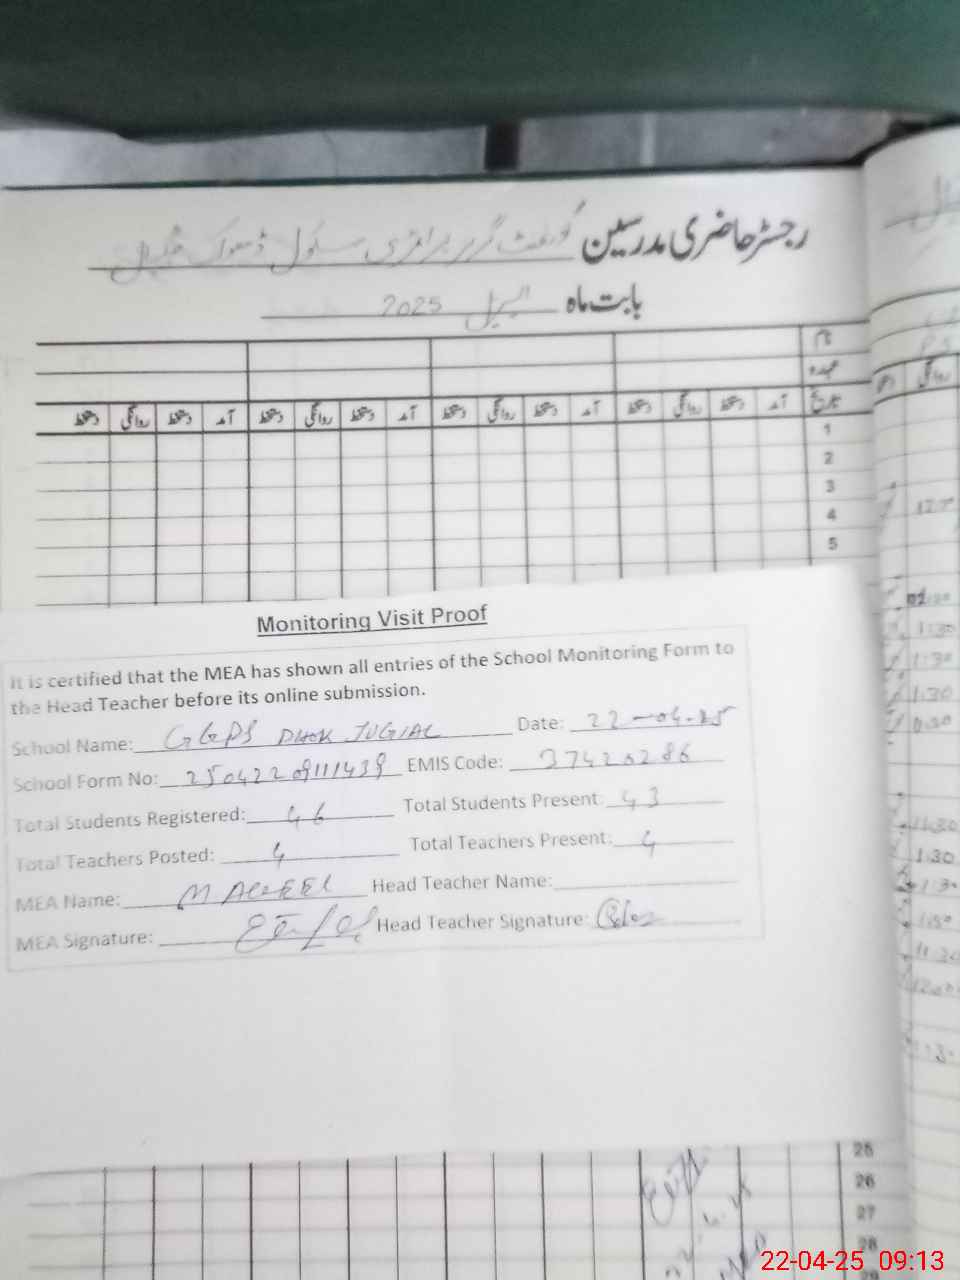 رجسٹر حاضری مدرسین گورنمنٹ گرلز پرائمری سکول ڈھوک جگیال
بابت ماہ اپریل 2025
نام
عہدہ
تاریخ آمد دستخط روانگی دستخط آمد دستخط روانگی دستخط آمد دستخط روانگی دستخط آمد دستخط روانگی دستخط
1
2
3
4
5
Monitoring Visit Proof
It is certified that the MEA has shown all entries of the School Monitoring Form to
the Head Teacher before its online submission.
School Name: GGPS DHOK JUGIAL Date: 22-04-25
School Form No: 25042209111439 EMIS Code: 37420286
Total Students Registered: 46 Total Students Present: 43
Total Teachers Posted: 4 Total Teachers Present: 4
MEA Name: M AQEEL Head Teacher Name:
MEA Signature: Head Teacher Signature:
25
26
27
28
29
روانگی
1:30
1:30
1:30
11:30
1:30
1:30
11:30
22-04-25 09:13